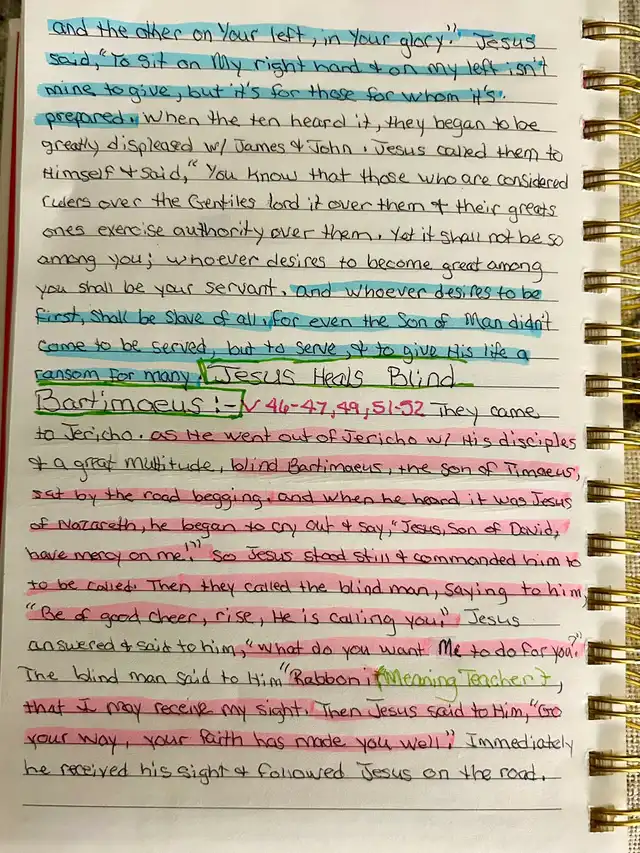 and the other on Your left, in Your glory." Jesus
said, "To sit on My right hand & on my left isn't
mine to give, but it's for those for whom it's
prepared. When the ten heard it, they began to be
greatly displeased w/ James & John. Jesus called them to
Himself & said, "You know that those who are considered
rulers over the Gentiles lord it over them & their greats
ones exercise authority over them. Yet it shall not be so
among you; whoever desires to become great among
you shall be your servant. and whoever desires to be
first, shall be slave of all. for even the Son of Man didn't
come to be served, but to serve, & to give His life a
ransom for many. Jesus Heals Blind
Bartimaeus :- V 46-47, 49, 51-52 They came
to Jericho. as He went out of Jericho w/ His disciples
& a great multitude, blind Bartimaeus, the son of Timaeus,
sat by the road begging. and when he heard it was Jesus
of Nazareth, he began to cry out & say, "Jesus, Son of David,
have mercy on me!" So Jesus stood still & commanded him to
to be called. Then they called the blind man, saying to him,
"Be of good cheer, rise, He is calling you." Jesus
answered & said to him, "What do you want Me to do for you?"
The blind man said to Him "Rabboni (Meaning Teacher),
that I may receive my sight. Then Jesus said to Him, "Go
your way, your faith has made you well." Immediately
he received his sight & followed Jesus on the road.